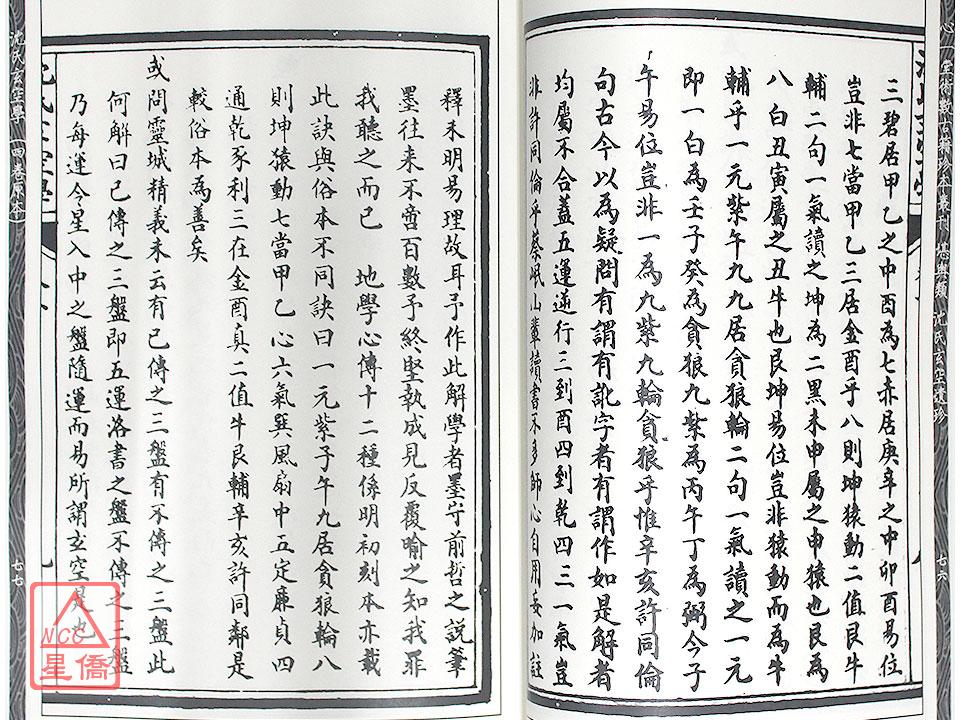 心一堂術數古籍珍本叢刊 堪輿類 沈氏玄空遺珍
七六
三碧居甲乙之中酉為七赤居庚辛之中卯酉易位
豈非七當甲乙三居金酉乎八則坤猿動二值艮牛
輔二句一氣讀之坤為二黑未申屬之申猿也艮為
八白丑寅屬之丑牛也艮坤易位豈非猿動而為牛
輔乎一元紫午九九居貪狼輪二句一氣讀之一元
即一白為壬子癸為貪狼九紫為丙午丁為弼今子
午易位豈非一為九紫九輪貪狼乎惟辛亥許同倫
句古今以為疑問有謂有訛字者有謂作如是解者
均屬不合蓋五運逆行三到酉四到乾四三一氣豈
非許同倫乎蔡岷山輩讀書不多師心自用妄加註
釋未明易理故耳予作此解學者墨守前哲之說筆
墨往來不啻百數予終堅執成見反覆喻之知我罪
我聽之而已 地學心傳十二種係明初刻本亦載
此訣與俗本不同訣曰一元紫子午九居貪狼輪八
則坤猿動七當甲乙心六氣巽風扇中五定廉貞四
通乾豕利三在金酉真二值牛艮輔辛亥許同鄰是
較俗本為善矣
或問靈城精義未云有已傳之三盤有不傳之三盤此
何解曰已傳之三盤即五運洛書之盤不傳之三盤
乃每運令星入中之盤隨運而易所謂玄空是也
沈氏玄空學(四卷原本)
七七
NCC
星僑